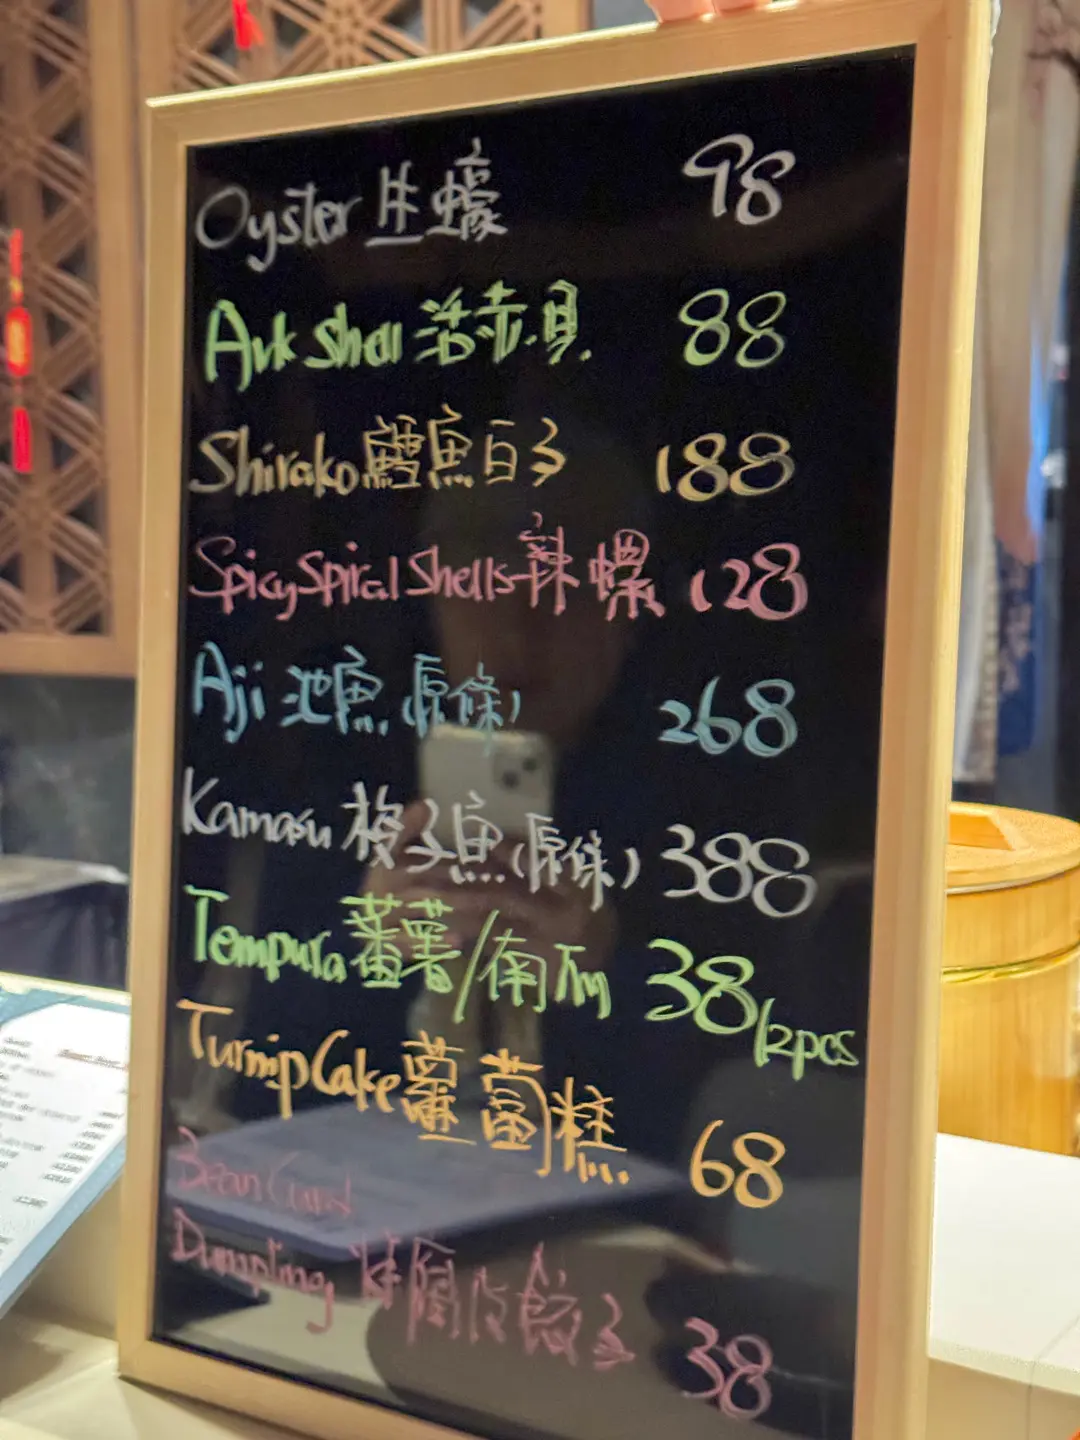 Oyster 生蠔 98
Ark Shell 活赤貝 88
Shirako 鱈魚白子 188
Spicy Spiral Shells 辣螺 128
Aji 池魚 (原條) 268
Kamasu 梭子魚 (原條) 388
Tempura 蕃薯/南瓜 38/2pcs
Turnip Cake 蘿蔔糕 68
Bean Curd
Dumpling 腐皮餃子 38